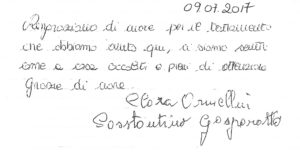 09.07.2017
Ringraziamo di cuore per il trattamento
che abbiamo avuto qui, ci siamo sentiti
come a casa accolti e pieni di attenzioni
Grazie di cuore.
Elora
Costantino Gasparotto